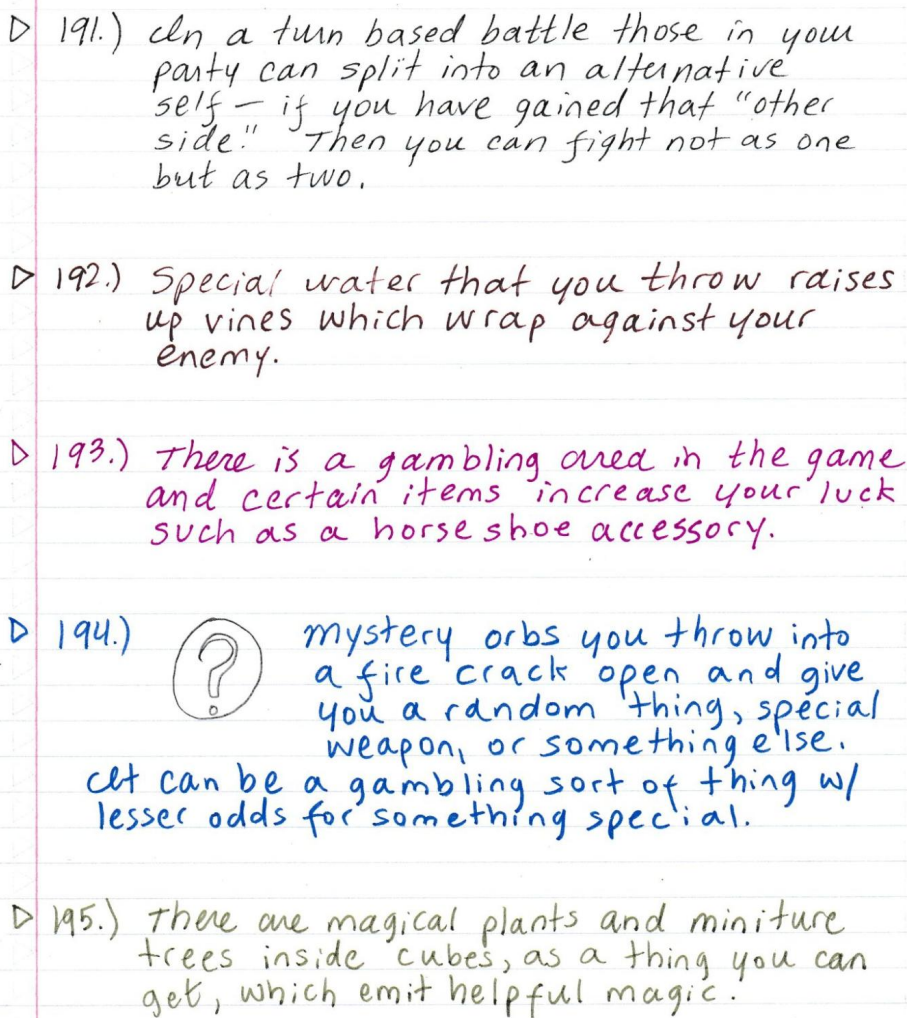 191.) In a turn based battle those in your
party can split into an alternative
self - if you have gained that "other
side." Then you can fight not as one
but as two.
192.) Special water that you throw raises
up vines which wrap against your
enemy.
193.) There is a gambling area in the game
and certain items increase your luck
such as a horse shoe accessory.
194.) ? mystery orbs you throw into
a fire crack open and give
you a random thing, special
weapon, or something else.
It can be a gambling sort of thing w/
lesser odds for something special.
195.) There are magical plants and miniture
trees inside cubes, as a thing you can
get, which emit helpful magic.